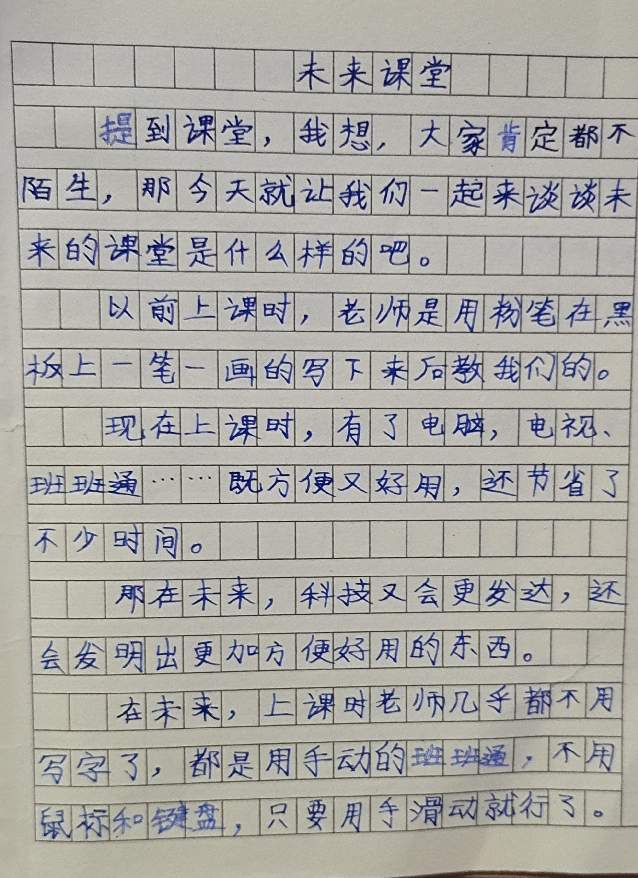 未来课堂
提到课堂，我想，大家肯定都不
陌生，那今天就让我们一起来谈谈未
来的课堂是什么样的吧。
以前上课时，老师是用粉笔在黑
板上一笔一画的写下来后教我们的。
现在上课时，有了电脑，电视、
班班通……既方便又好用，还节省了
不少时间。
那在未来，科技又会更发达，还
会发明出更加方便好用的东西。
在未来，上课时老师几乎都不用
写字了，都是用手动的班班通，不用
鼠标和键盘，只要用手滑动就行了。